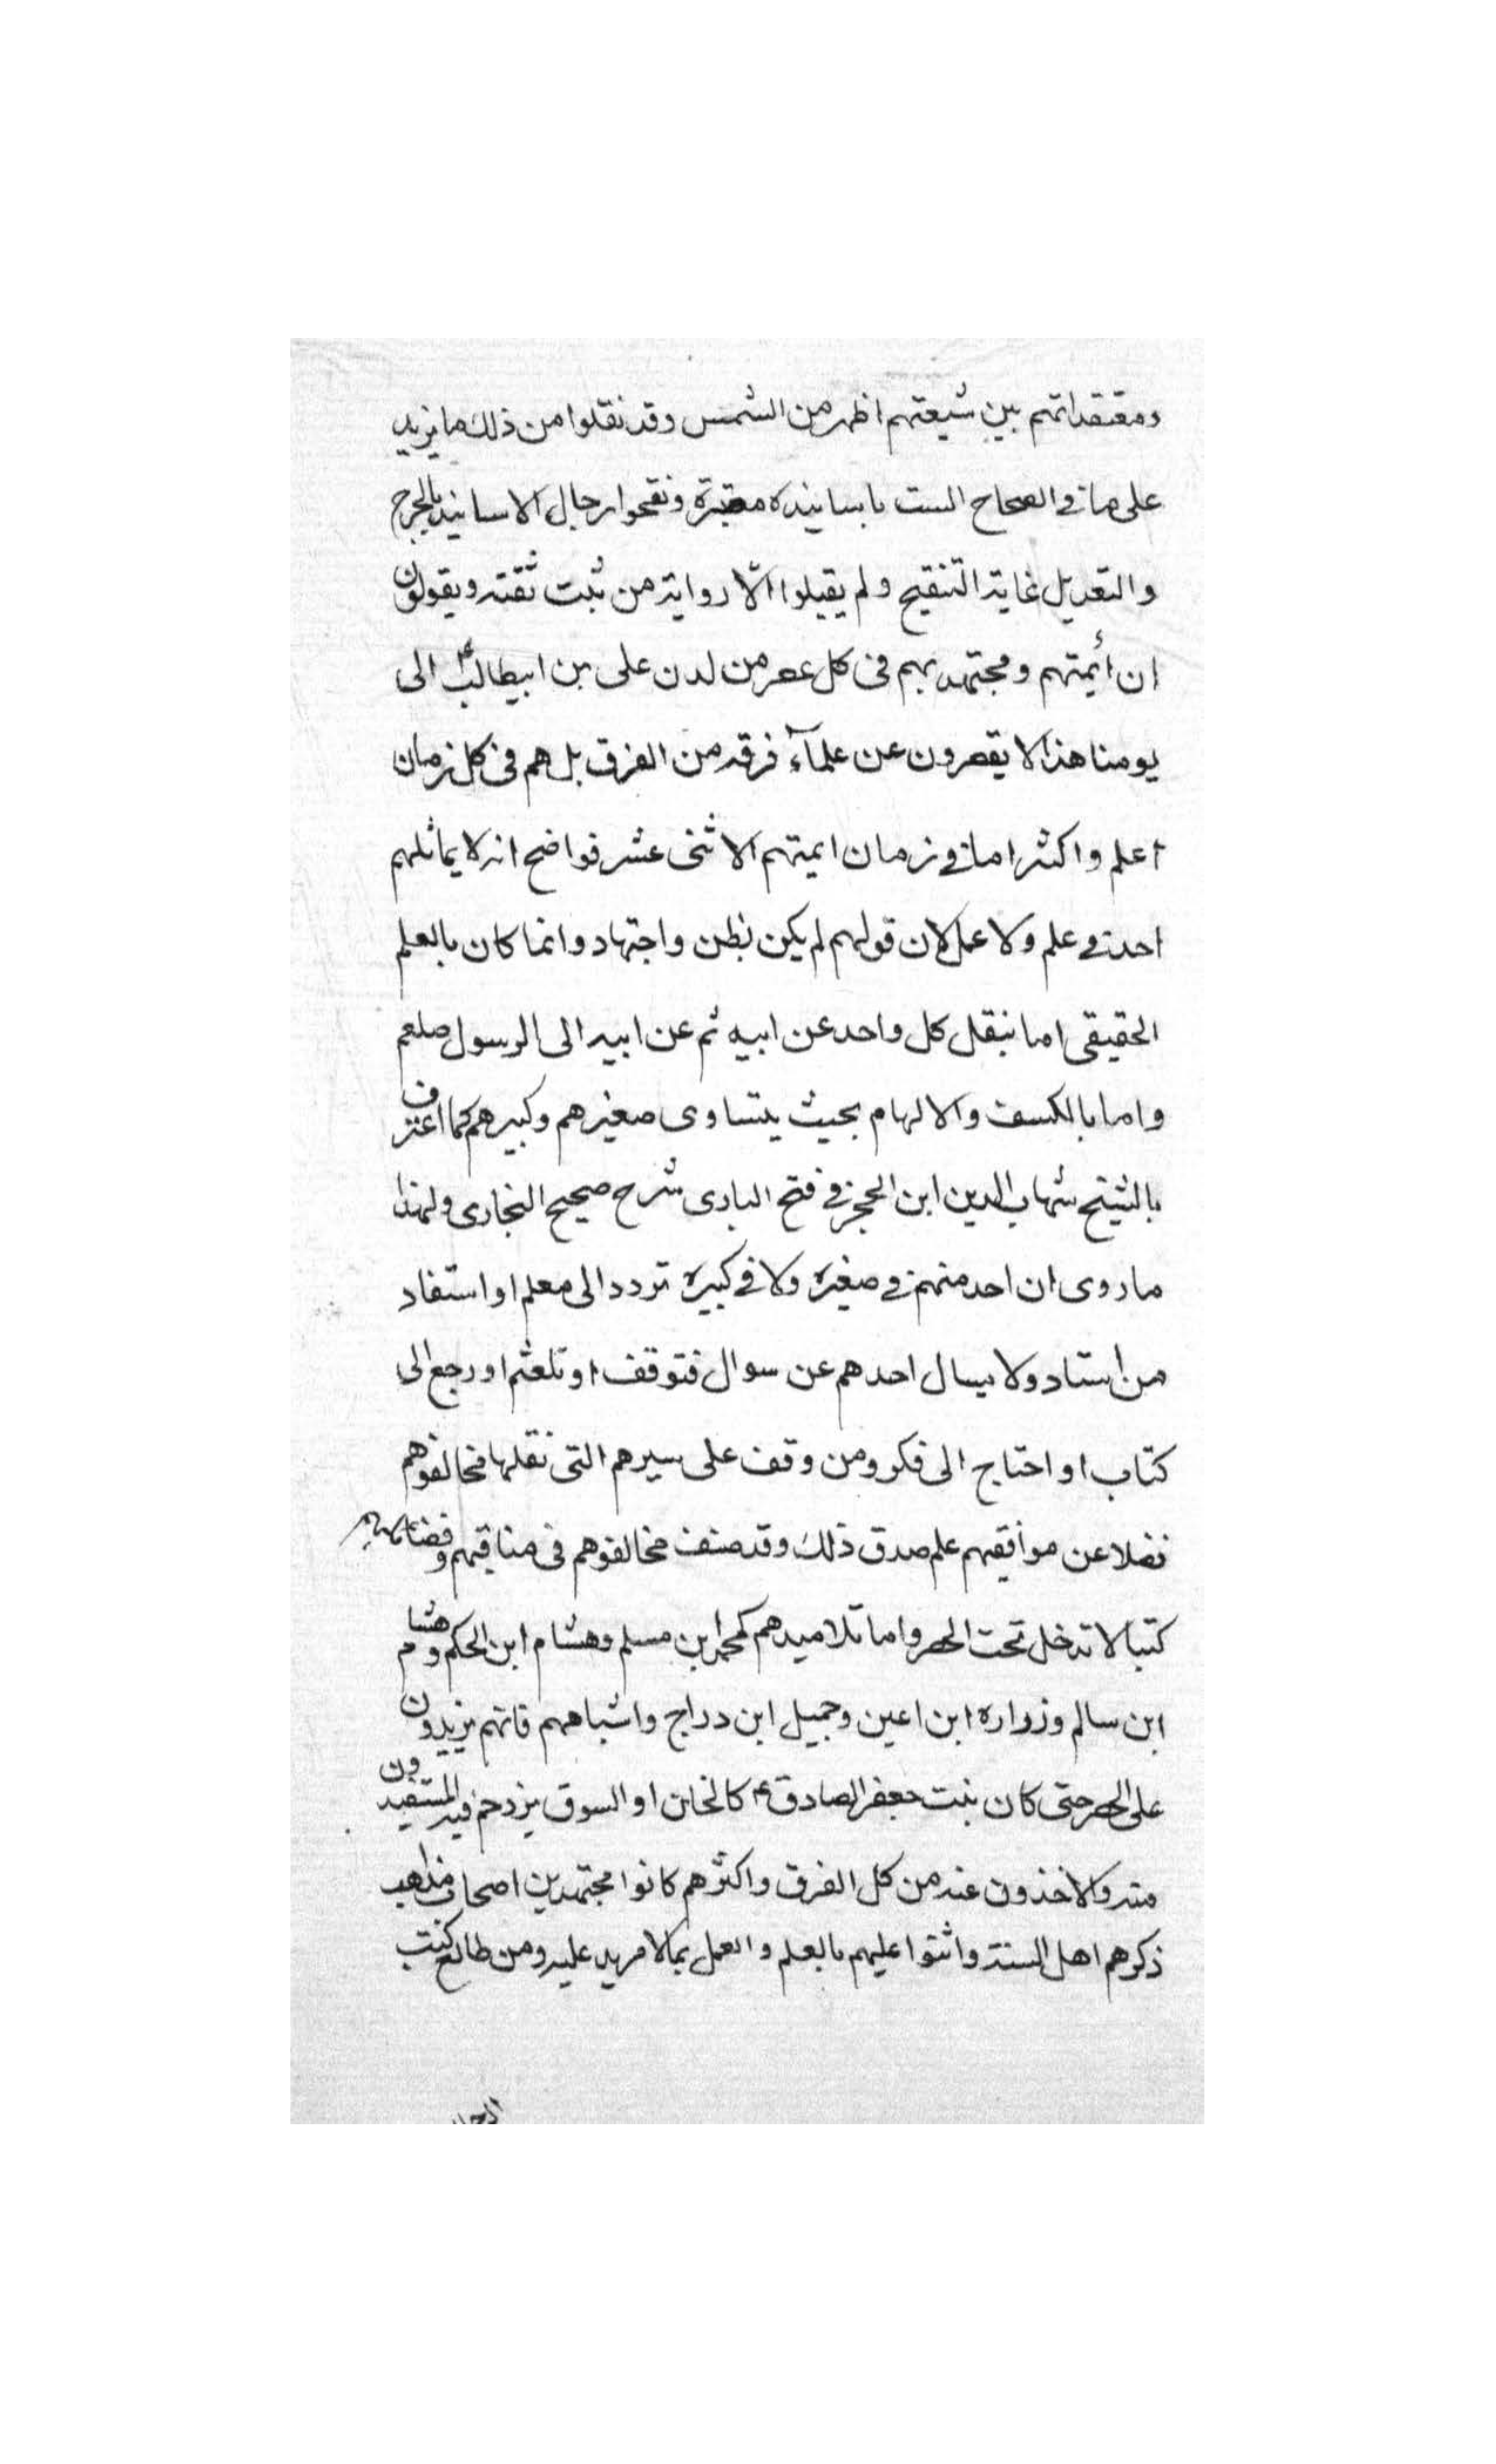 ومعتقداتهم بين شيعتهم اظهر من الشمس وقد نقلوا من ذلك ما يزيد
على ما في الصحاح الست باسانيده معتبرة ونقحوا رجال الاسانيد بالجرح
والتعديل غاية التنقيح ولم يقبلوا الّا رواية من ثبت ثقته ويقولون
ان أئمتهم ومجتهديهم فى كل عصر من لدن على بن ابيطالب ع الى
يومنا هذا لا يقصرون عن علمآء فرقه من الفرق بل هم فى كل زمان
اعلم واكثر اما في زمان ايمتهم الاثنى عشر فواضح انه لا يماثلهم
احد في علم ولا عمل لان قولهم لم يكن بظن واجتهاد وانما كان بالعلم
الحقيقى اما بنقل كل واحد عن ابيه ثم عن ابيه الى الرسول صلعم
واما بالكسف والالهام بحيث يتساوى صغيرهم وكبيرهم كما اعترف
بالشيخ شهاب الدين ابن الحجر في فتح البارى شرح صحيح البخارى ولهذا
ما روى ان احد منهم في صغيره ولا في كبيره تردد الى معلم او استفاد
من استاد ولا يسال احدهم عن سوال فتوقف او تلعثم او رجع الى
كتاب او احتاج الى فكر ومن وقف على سيرهم التى نقلها مخالفوهم
فضلا عن موافقيهم علم صدق ذلك وقد صنف مخالفوهم فى مناقبهم وفضائلهم
كتبا لا تدخل تحت الحصر واما تلاميدهم كمحمد ابن مسلم وهشام ابن الحكم وهشام
ابن سالم وزراره ابن اعين وجميل ابن دراج واشباههم فانهم يزيدون
على الحصر حتى كان بنت جعفر الصادق ع كالخان او السوق يزدحم فيه المستفيدون
منه والاخذون عنه من كل الفرق واكثرهم كانوا مجتهدين اصحاب مذاهب
ذكرهم اهل السنة واثنوا عليهم بالعلم والعمل بما لا مزيد عليه ومن طالع كتب